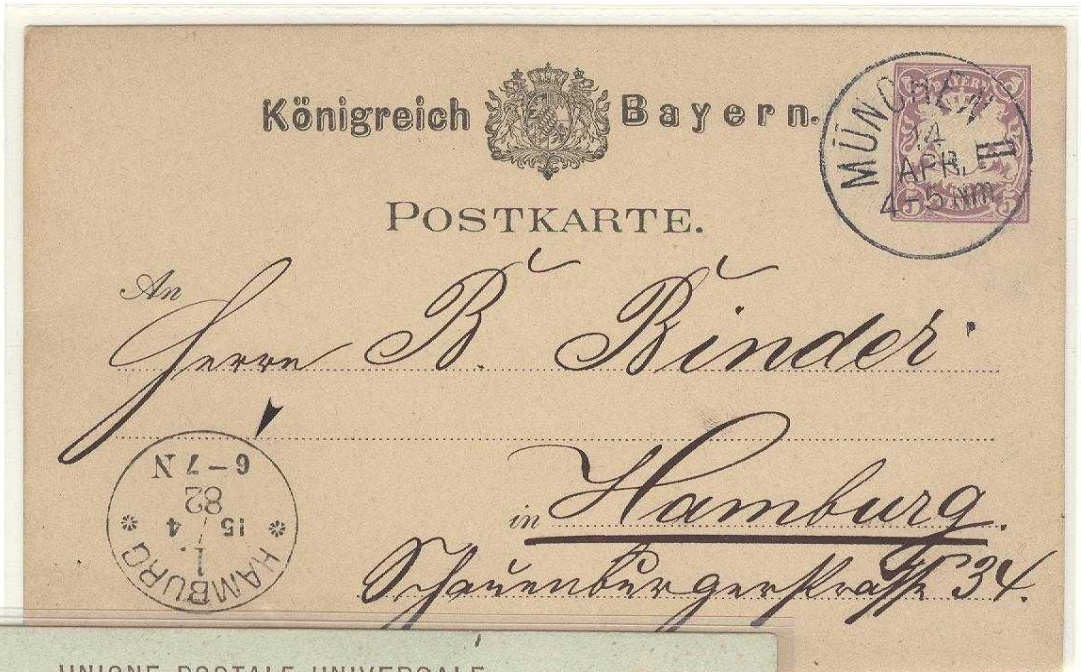 Königreich Bayern.
BAYERN
MÜNCHEN III
14
APR.
4-5 Nm
5 5
POSTKARTE.
An
Herrn B. Binder
in Hamburg.
Schauenburgerstraße 34.
HAMBURG
* 1. *
15 4
82
6-7 N
UNIONE POSTALE UNIVERSALE